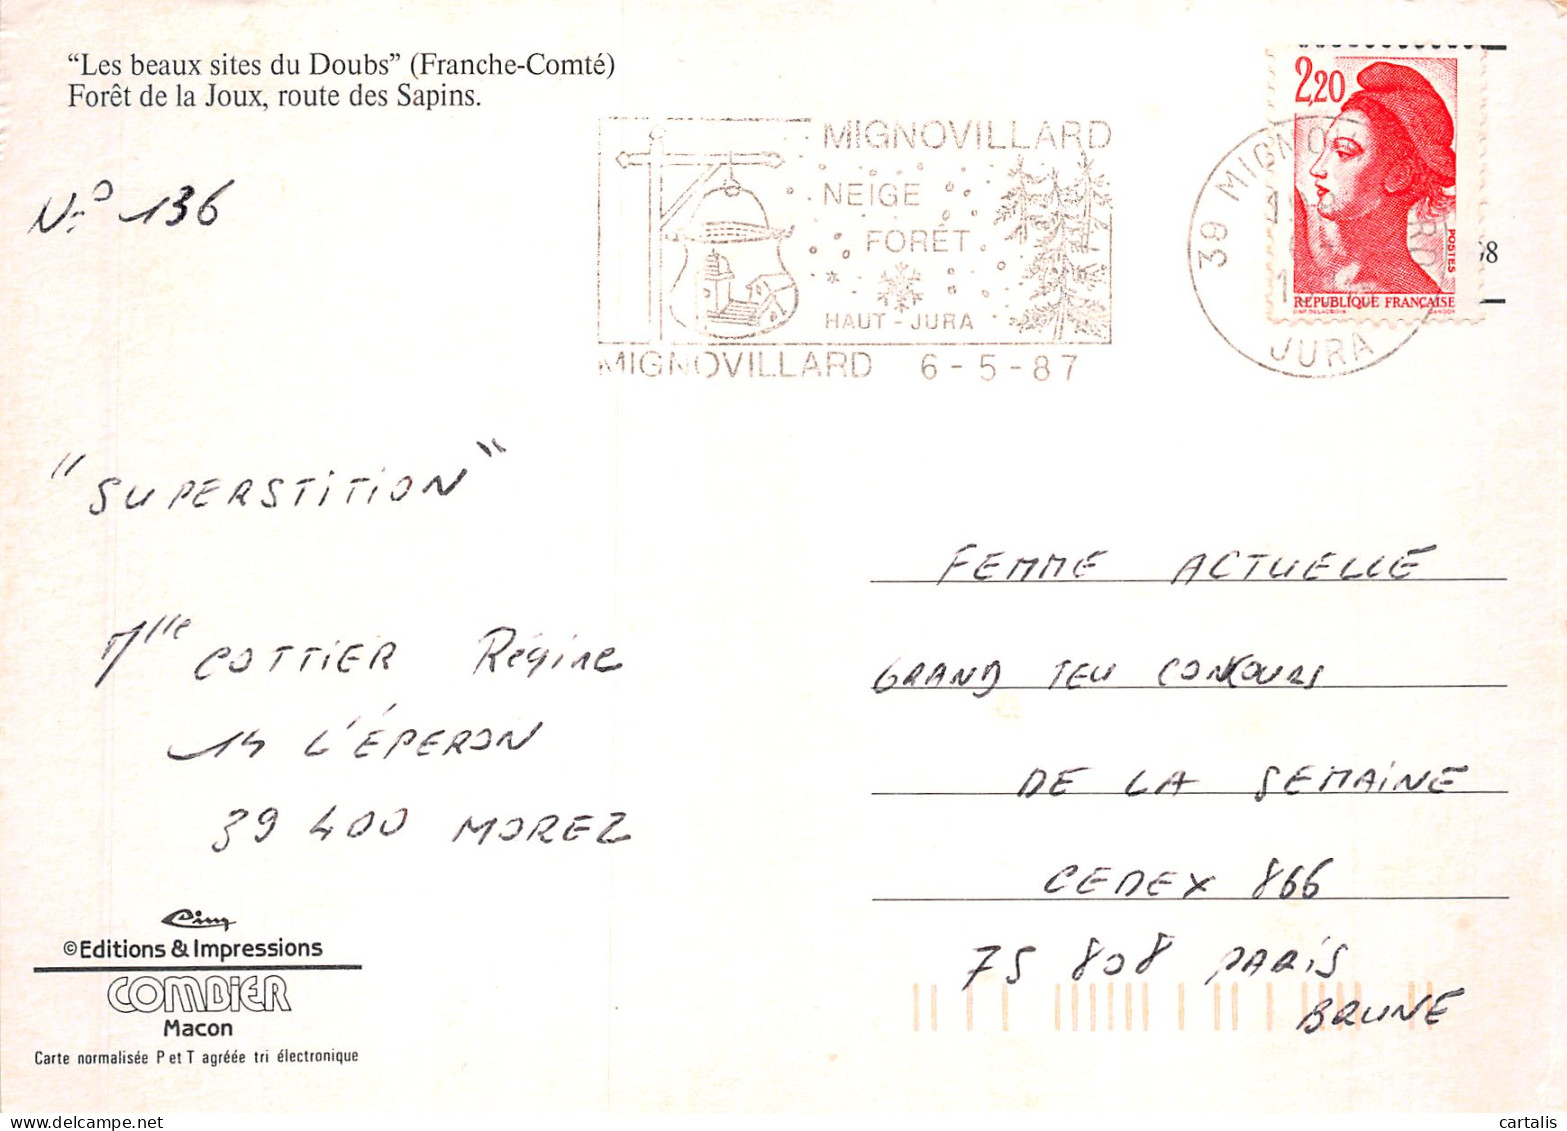 “Les beaux sites du Doubs” (Franche-Comté)
Forêt de la Joux, route des Sapins.
No 136
MIGNOVILLARD
NEIGE
FORÊT
HAUT - JURA
MIGNOVILLARD 6 - 5 - 87
39 MIGNO RD
JURA
2,20
POSTES
REPUBLIQUE FRANÇAISE
98
"SUPERSTITION"
Mlle COTTIER Régine
14 L'ÉPERON
39 400 MOREZ
FEMME ACTUELLE
GRAND JEU CONCOURS
DE LA SEMAINE
CEDEX 866
75 808 PARIS
BRUNE
Cim
©Editions & Impressions
COMBIER
Macon
Carte normalisée P et T agréée tri électronique
cartalis